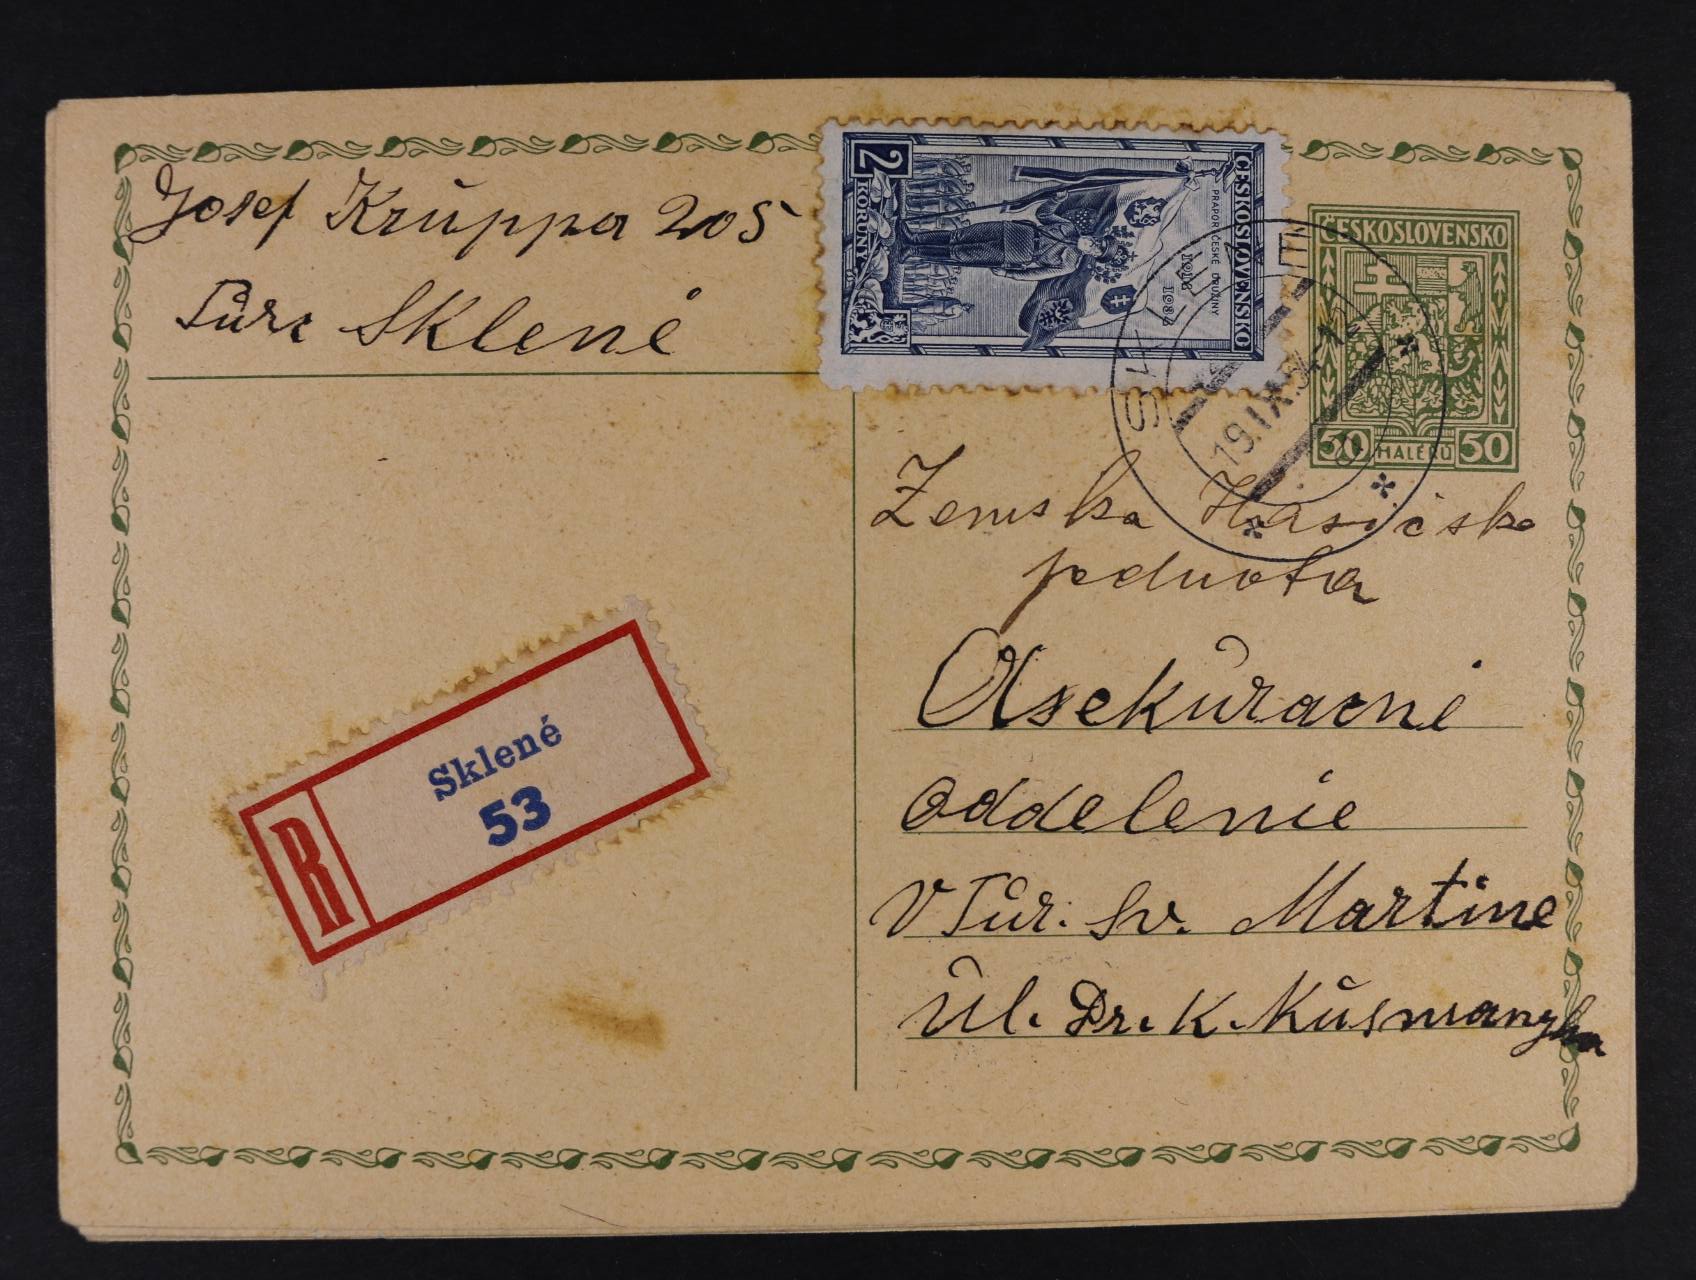 Josef Kruppa 205
Turc Sklené
ČESKOSLOVENSKO
PRAPOR ČESKÉ DRUŽINY
1914 1934
2 KORUNY
ČESKOSLOVENSKO
50 HALÉŘŮ 50
SKLENÉ
19.IX.34-12
Zemska Hasičska
jednota
Asekuračné
oddelenie
v Tur. Sv. Martine
Ul. Dr. K. Kusmanyho
R
Sklené
53